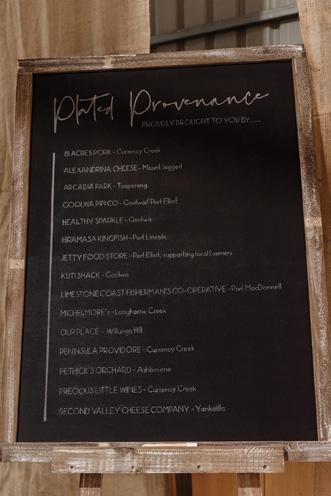 Plated Provenance
PROUDLY BROUGHT TO YOU BY......
81 ACRES PORK - Currency Creek
ALEXANDRINA CHEESE - Mount Jagged
ARCADIA PARK - Tooperang
GOOLWA PIPICO - Goolwa/ Port Elliot
HEALTHY SPARKLE - Goolwa
HIRAMASA KINGFISH - Port Lincoln
JETTY FOOD STORE - Port Elliot, supporting local farmers
KUTI SHACK - Goolwa
LIMESTONE COAST FISHERMAN'S CO-OPERATIVE - Port MacDonnell
MICHELMORE's - Langhorne Creek
OUR PLACE - Willunga Hill
PENINSULA PROVIDORE - Currency Creek
PETHICK'S ORCHARD - Ashbourne
PRECIOUS LITTLE WINES - Currency Creek
SECOND VALLEY CHEESE COMPANY - Yankalilla